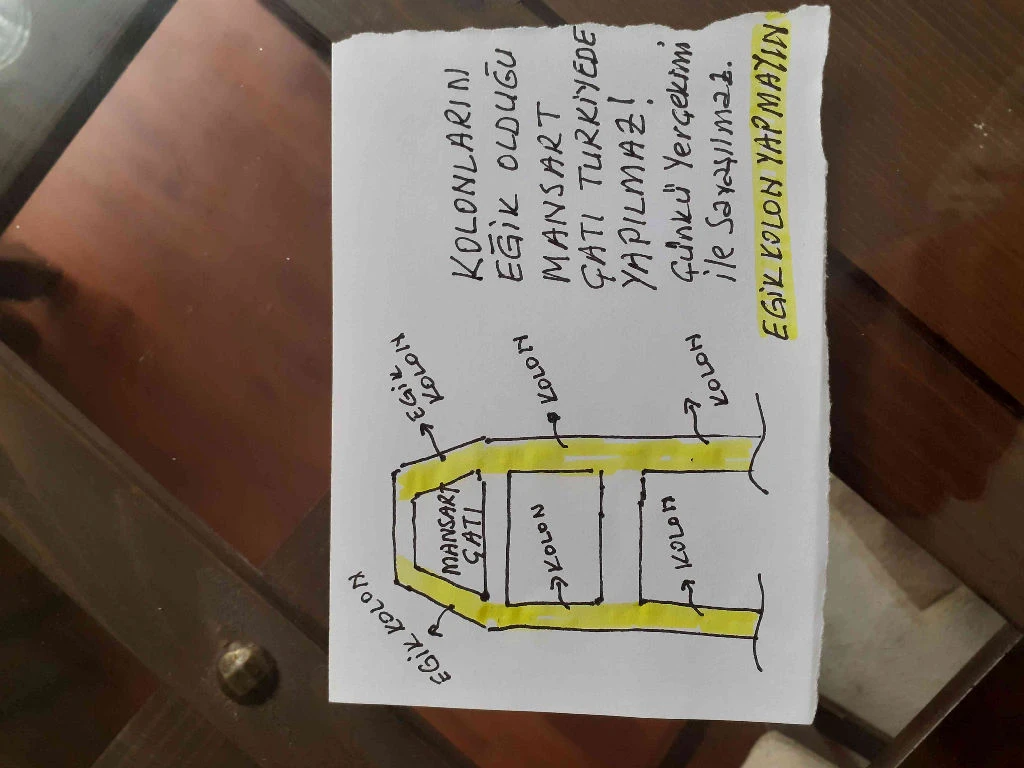 KOLONLARIN
EĞİK OLDUĞU
MANSART
ÇATI TURKİYEDE
YAPILMAZ!
Çünkü Yerçekimi
ile Savaşılmaz.
EGİK KOLON YAPMAYIN
EGİK KOLON
EGİK
KOLON
MANSART
ÇATI
KOLON
KOLON
KOLON
KOLON